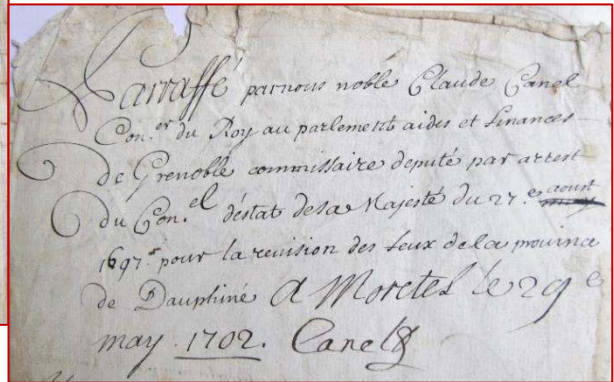 Parraffé par nous noble Claude Canel
Con.er du Roy au parlement aides et finances
de Grenoble commissaire deputé par arrest
du Con.el déstat de sa Majesté du 27.e aoust
1697. pour la revision des feux de la province
de Dauphiné A Moretel le 29e
may. 1702. Canel